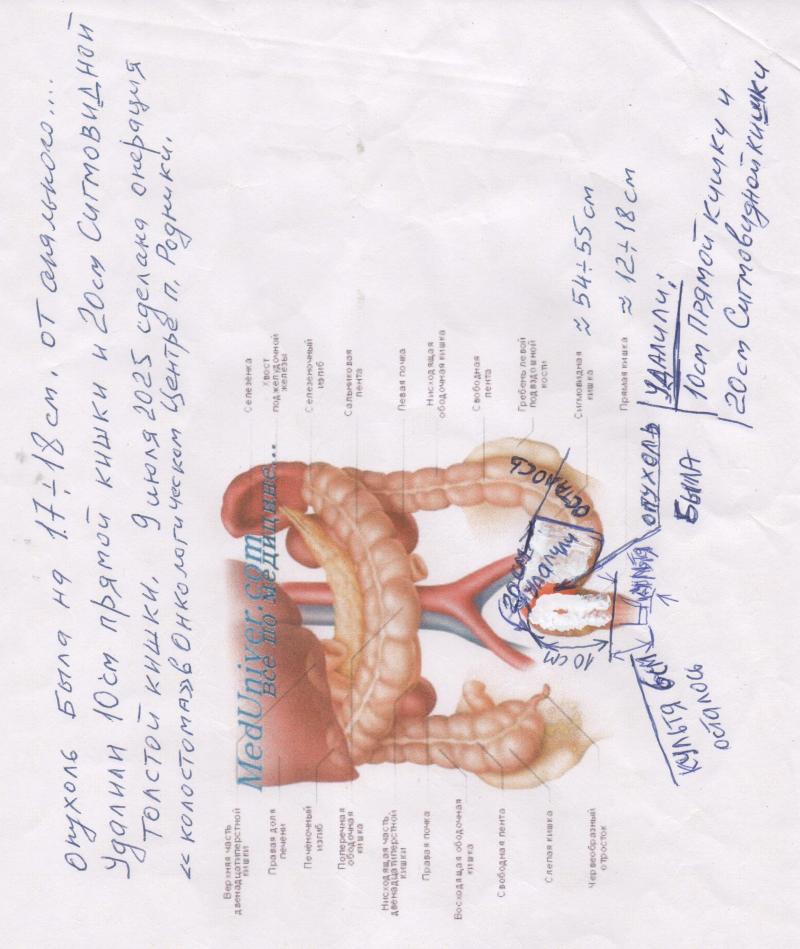 Опухоль была на 17÷18 см. от анального....
Удалили 10см прямой кишки и 20см Сигмовидной
толстой кишки. 9 июля 2025 сделана операция
«колостома» в Онкологическом Центре п. Родники.
MedUniver.com
Все по медицине...
Верхняя часть
двенадцатиперстной
кишки
Правая доля
печени
Печеночный
изгиб
Поперечная
ободочная
кишка
Нисходящая часть
двенадцатиперстной
кишки
Правая почка
Восходящая ободочная
кишка
Свободная лента
Слепая кишка
Червеобразный
отросток
Селезенка
Хвост
поджелудочной
железы
Селезеночный
изгиб
Сальниковая
лента
Левая почка
Нисходящая
ободочная кишка
Свободная
лента
Гребень левой
подвздошной
кости
Сигмовидная
кишка
≈ 54÷55см
Прямая кишка
≈ 12÷18см
осталось
20см
удалили
10см
культя
опухоль
была
Культя 6см
осталось
Удалили:
10см Прямой кишку и
20см Сигмовидной кишки